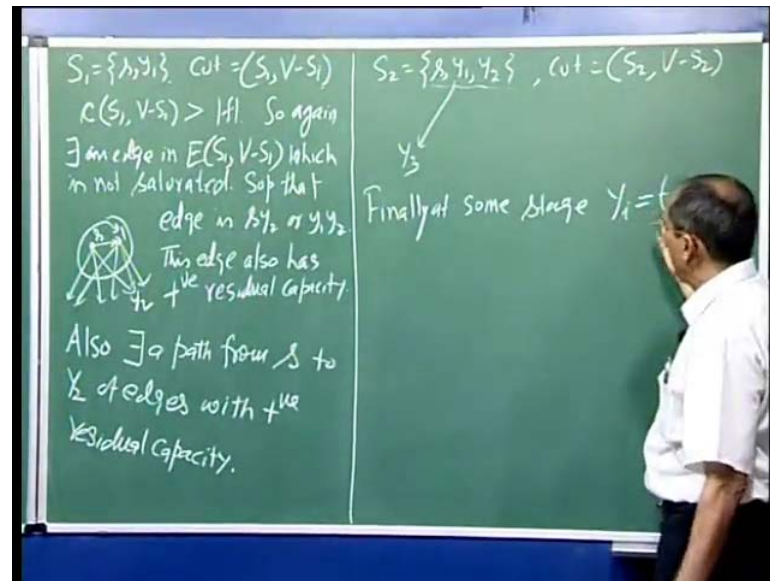 S₁ = {s, y₁}. Cut = (S₁, V-S₁)
c(S₁, V-S₁) > |f|. So again
∃ an edge in E(S₁, V-S₁) which
is not saturated. Sup that
edge is sy₂ or y₁y₂.
This edge also has
+ve residual capacity.
s y₁
y₂
Also ∃ a path from s to
y₂ of edges with +ve
residual capacity.
S₂ = {s, y₁, y₂}, cut = (S₂, V-S₂)
y₃
Finally at some stage yᵢ = t